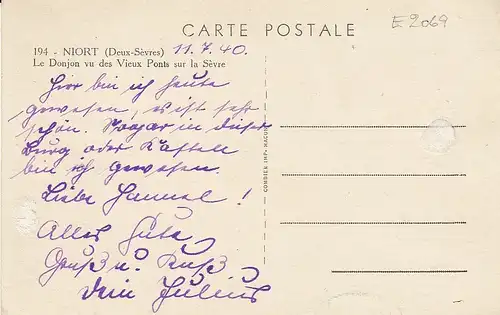 CARTE POSTALE
E 2069
194 - NIORT (Deux-Sèvres) 11.7.40.
Le Donjon vu des Vieux Ponts sur la Sèvre
Hier bin ich heute
gewesen, es ist sehr
schön. Sogar in dieser
Burg oder Kastell
bin ich gewesen.
Liebe !
Alles Gute
Gruß u. Kuß
Dein Julius
COMBIER IMP. MACON